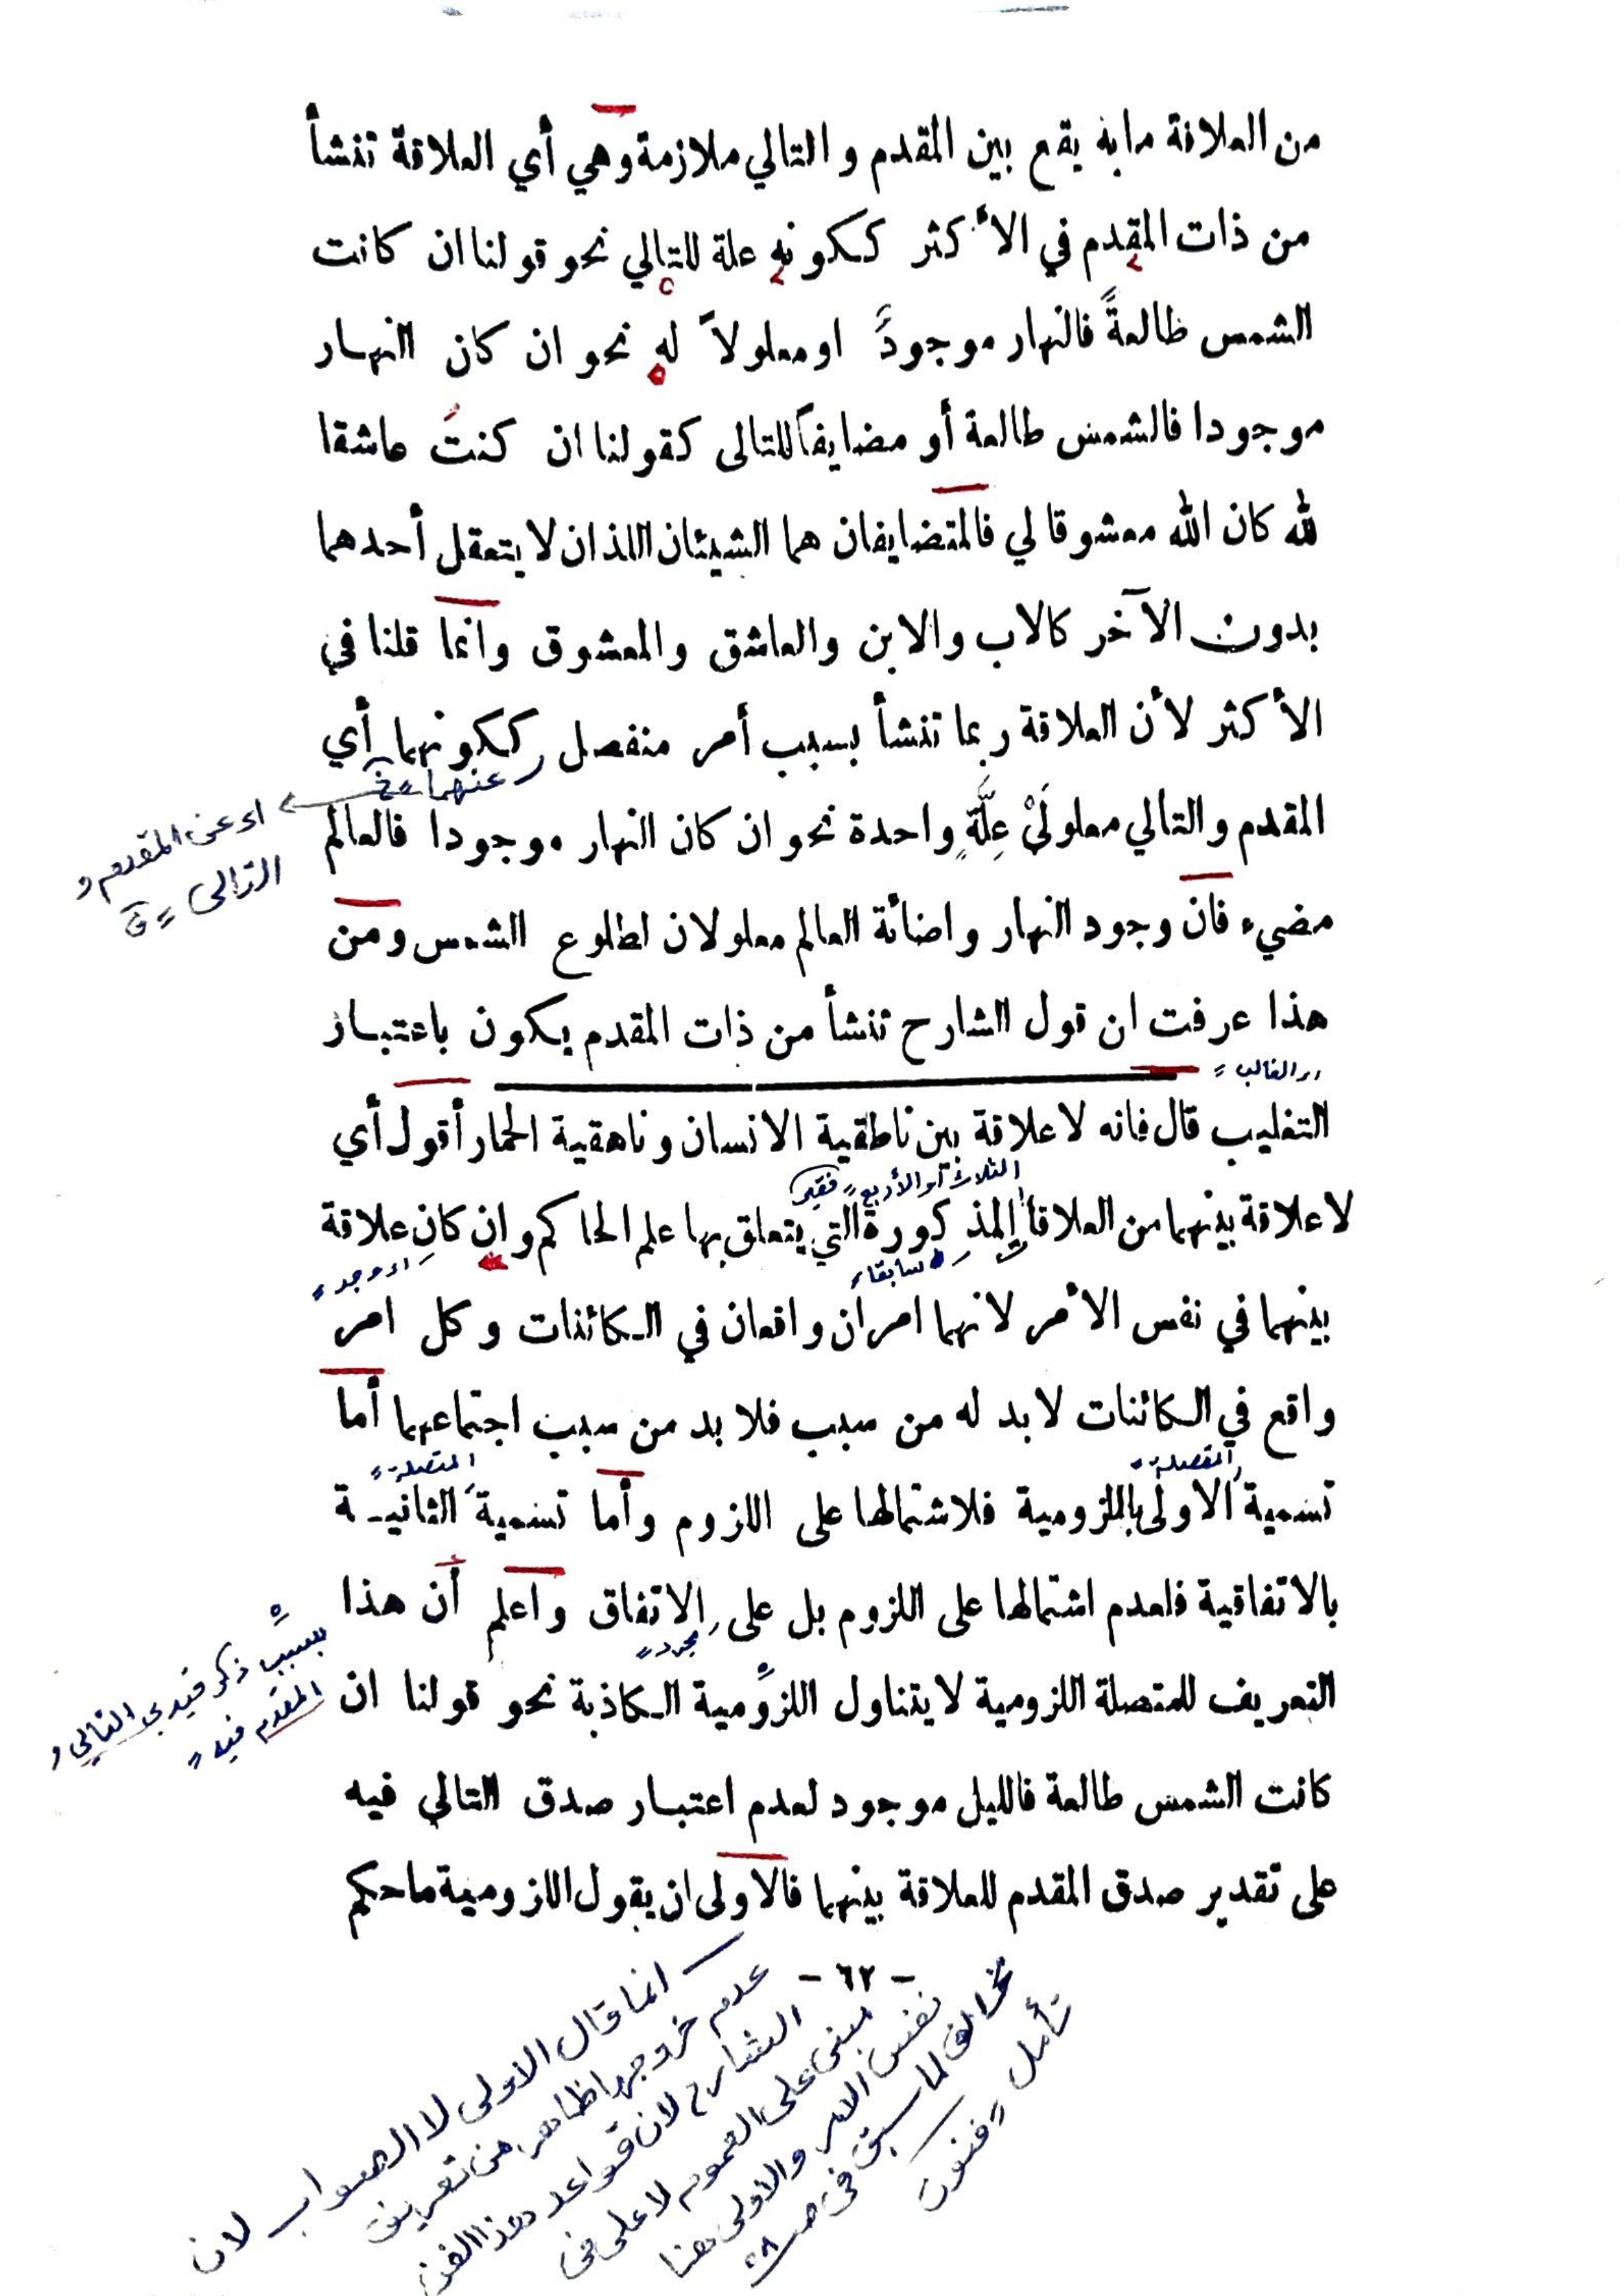 من العلاقة مابه يقع بين المقدم والتالي ملازمة وهي أي العلاقة تنشأ
من ذات المقدم في الأكثر ككونه علة للتالي نحو قولنا ان كانت
الشمس طالعةً فالنهار موجودً او معلولاً له نحو ان كان النهار
موجودا فالشمس طالعة أو مضايفاً للتالى كقولنا ان كنتَ عاشقا
لله كان الله معشوقا لي فالمتضايفان هما الشيئان اللذان لا يتعقل أحدهما
بدون الآخر كالاب والابن والعاشق والمعشوق وانما قلنا في
الأكثر لأن العلاقة ربما تنشأ بسبب أمر منفصل ككونهما أي
عنهما
اى عن المقدم و
التالى
المقدم والتالي معلولَيْ عِلَّةٍ واحدة نحو ان كان النهار موجودا فالعالم
مضيء فان وجود النهار واضائة العالم معلولان لطلوع الشمس ومن
هذا عرفت ان قول الشارح تنشأ من ذات المقدم يكون باعتبار
الغالب
التغليب قال فانه لا علاقة بين ناطقية الانسان وناهقية الحمار أقول أي
الثلاث أو الأربع
لا علاقة بينهما من العلاقات المذكورة التي يتعلق بها علم الحاكم وان كان علاقة
سابقا
اى وجد
بينهما في نفس الأمر لانهما امران واقعان في الكائنات وكل امر
واقع في الكائنات لابد له من سبب فلا بد من سبب اجتماعهما أما
المتصلة
تسمية الاولى باللزومية فلاشتمالها على اللزوم وأما تسمية الثانيـة
بالاتفاقية فلعدم اشتمالها على اللزوم بل على الاتفاق واعلم أن هذا
مجرد
بسبب ذكر قيدى التالي و
المقدم فيه
التعريف للمتصلة اللزومية لا يتناول اللزومية الكاذبة نحو قولنا ان
كانت الشمس طالعة فالليل موجود لعدم اعتبار صدق التالي فيه
على تقدير صدق المقدم للعلاقة بينهما فالاولى ان يقول اللزومية ما حكم
- ٦٢ -
انما قال الاولى لا الصواب لان
عدم خروجها ظاهر من تعريف
الشارح لان قواعد هذا الفن
مبنى على العموم لا على فى
نفس الامر والاولى هنا
مخالف لما سبق فى صـ
تأمل